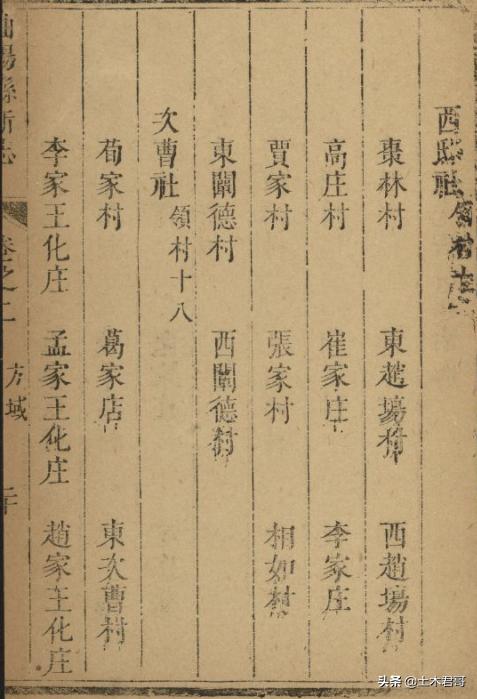 西邸社 領村
棗林村 東趙場村 西趙場村
高庄村 崔家庄 李家庄
賈家村 張家村 相如村
東闡德村 西闡德村
次曹社 領村十八
荀家村 葛家店 東次曹村
李家王化庄 孟家王化庄 趙家王化庄
陽縣新志 卷之二 方域
头条 @土木君哥